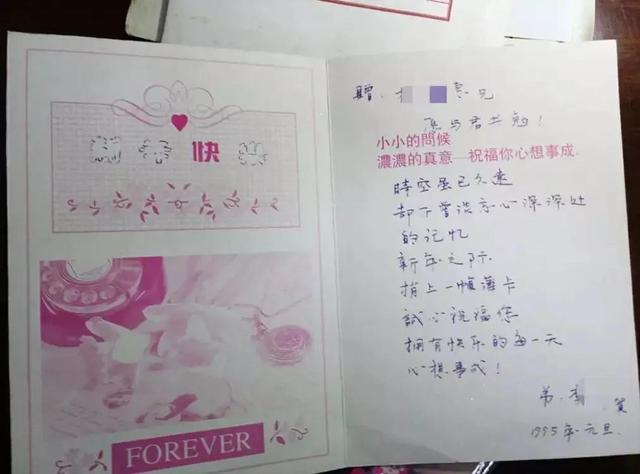 快
FOREVER
贈: 意兄
愿与君共勉!
小小的問候
濃濃的真意—祝福你心想事成.
時空虽已久遠
却不曾淡忘心深深处
的记忆
新年之际
捎上一幀薄卡
誠心祝福您
拥有快乐的每一天
心想事成!
弟:李 賀
1995年元旦.